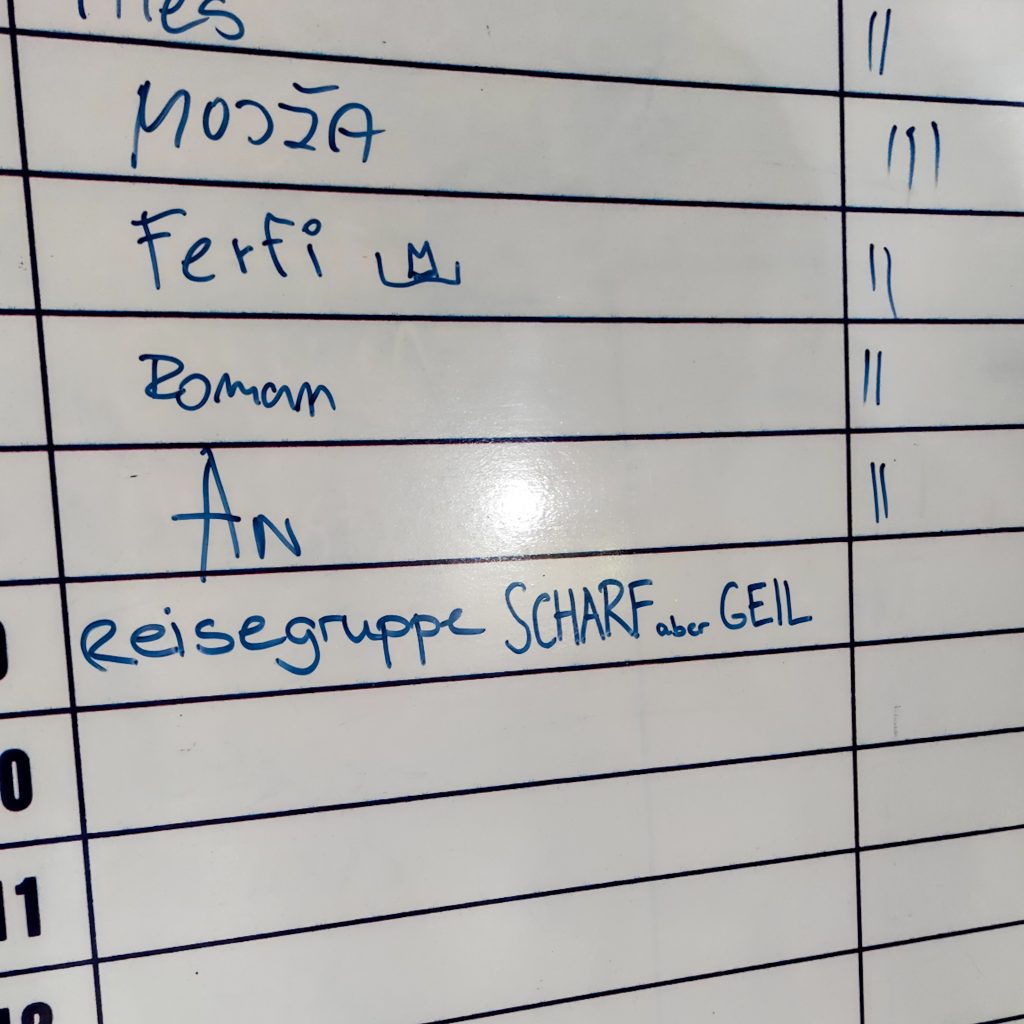 MOJŽA III
Ferfi II
Roman II
AN II
Reisegruppe SCHARF aber GEIL
11